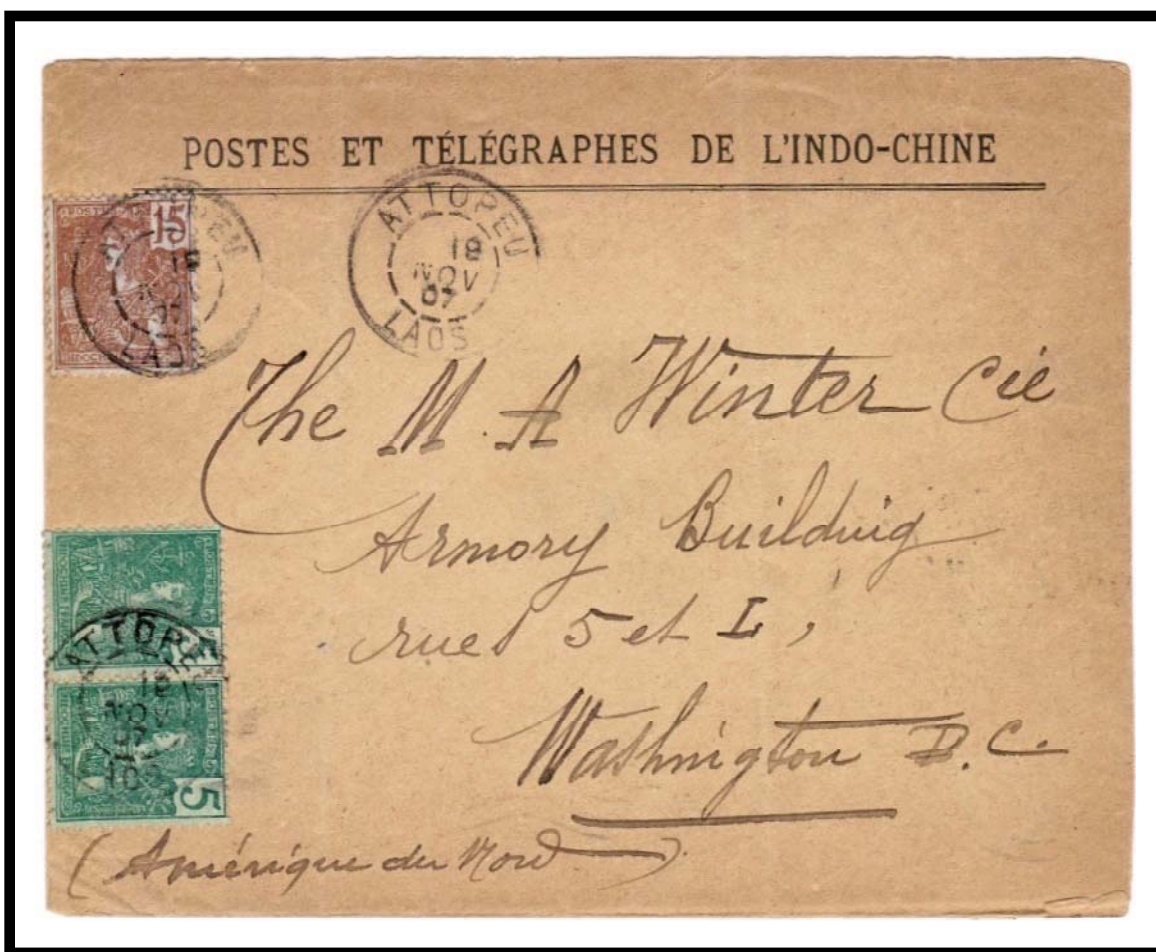 POSTES ET TÉLÉGRAPHES DE L'INDO-CHINE
15
ATTOPEU
18
NOV
07
LAOS
ATTOPEU
18
NOV
07
LAOS
The M. A Winter Cie
Armory Building
rues 5 et L,
Washington D.C.
5
ATTOPE
18
NOV
07
5
(Amérique du Nord)